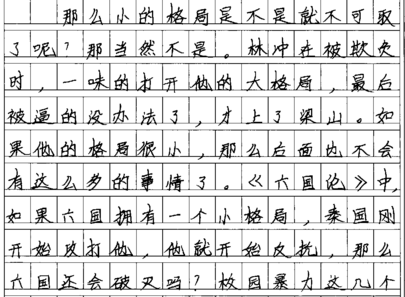 那么小的格局是不是就不可取
了呢？那当然不是。林冲在被欺负
时，一味的打开他的大格局，最后
被逼的没办法了，才上了梁山。如
果他的格局很小，那么后面也不会
有这么多的事情了。《六国论》中，
如果六国拥有一个小格局，秦国刚
开始攻打他，他就开始反抗，那么
六国还会破灭吗？校园暴力这几个